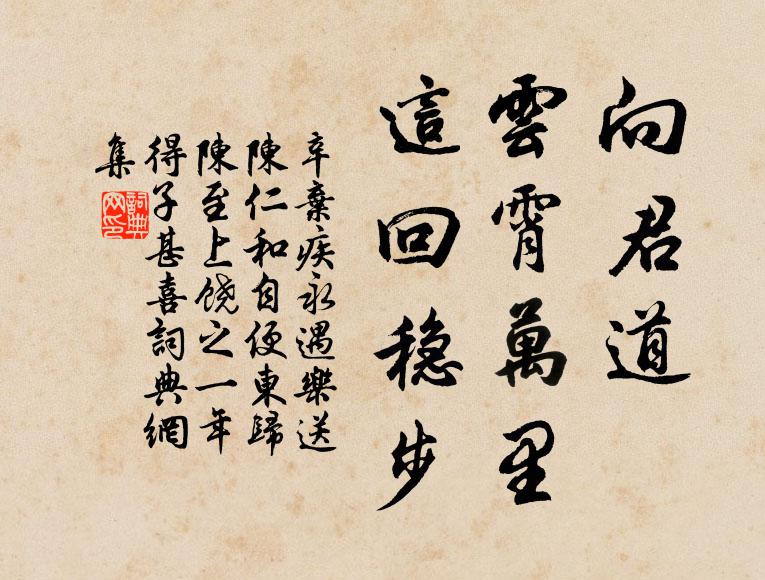 向君道
雲霄萬里
這回稳步
辛棄疾永遇樂送
陳仁和自便東歸
陳至上饒之一年
得子甚喜詞典網
集
詞典
网印